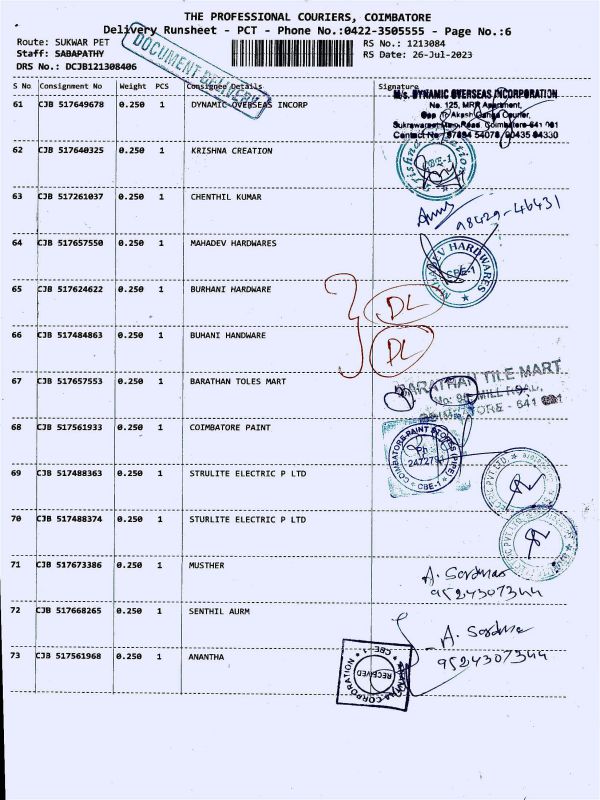 THE PROFESSIONAL COURIERS, COIMBATORE
Delivery Runsheet - PCT - Phone No.:0422-3505555 - Page No.:6
Route: SUKWAR PET
RS No.: 1213084
Staff: SABAPATHY
RS Date: 26-Jul-2023
DRS No.: DCJB121308406
DOCUMENT DELIVERY
S No Consignment No Weight PCS Consignee Details Signature
61 CJB 517649678 0.250 1 DYNAMIC OVERSEAS INCORP
M/s. DYNAMIC OVERSEAS INCORPORATION
No. 125, MRR Apartment,
Opp. Akash Ganga Courier,
Sukrawarpet Main Road, Coimbatore-641 001
Contact No: 97894 54078 / 90435 84330
62 CJB 517640325 0.250 1 KRISHNA CREATION
Krishna Creation
CBE-1
63 CJB 517261037 0.250 1 CHENTHIL KUMAR
98429-46431
64 CJB 517657550 0.250 1 MAHADEV HARDWARES
MAHADEV HARDWARES
CBE-1
65 CJB 517624622 0.250 1 BURHANI HARDWARE
DL
66 CJB 517484863 0.250 1 BUHANI HANDWARE
DL
67 CJB 517657553 0.250 1 BARATHAN TOLES MART
BARATHAN TILE MART
MILL ROAD,
COIMBATORE - 641 001
68 CJB 517561933 0.250 1 COIMBATORE PAINT
COIMBATORE PAINT STORES
Ph:
CBE-1
69 CJB 517488363 0.250 1 STRULITE ELECTRIC P LTD
PVT LTD
70 CJB 517488374 0.250 1 STURLITE ELECTRIC P LTD
PVT LTD
71 CJB 517673386 0.250 1 MUSTHER
9524307344
72 CJB 517668265 0.250 1 SENTHIL AURM
9524307344
73 CJB 517561968 0.250 1 ANANTHA
ANANTHA CORPORATION
CBE-1
RECEIVED